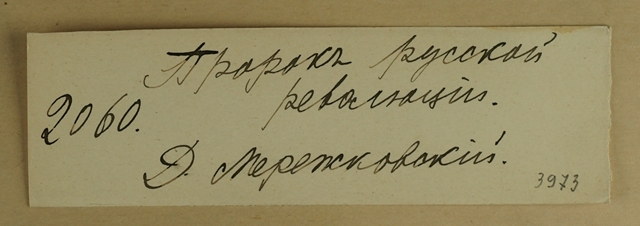 Пророкъ русской
революціи.
2060.
Д. Мережковскій.
3973